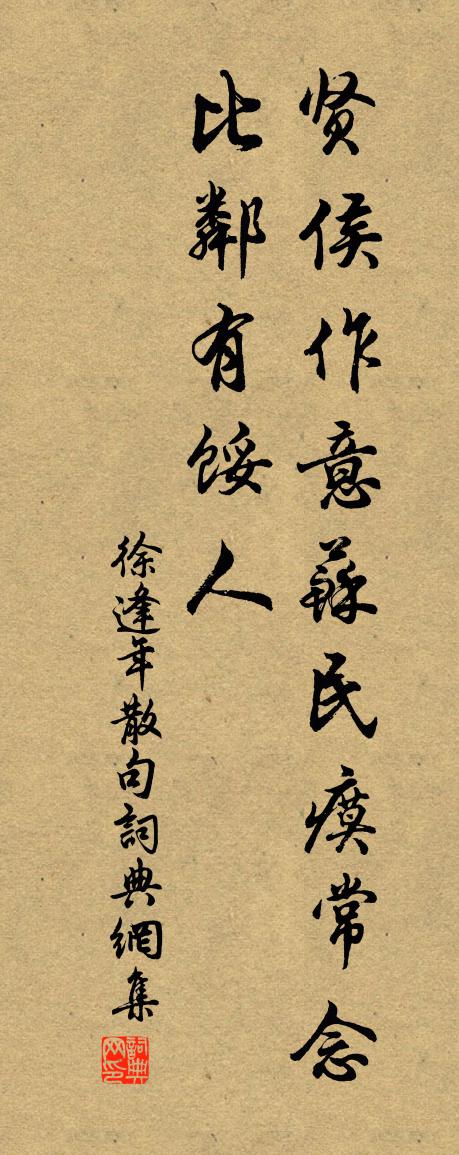 贤侯作意蘇民瘼常念
比鄰有餒人
徐逢年散句詞典網集
詞典网印